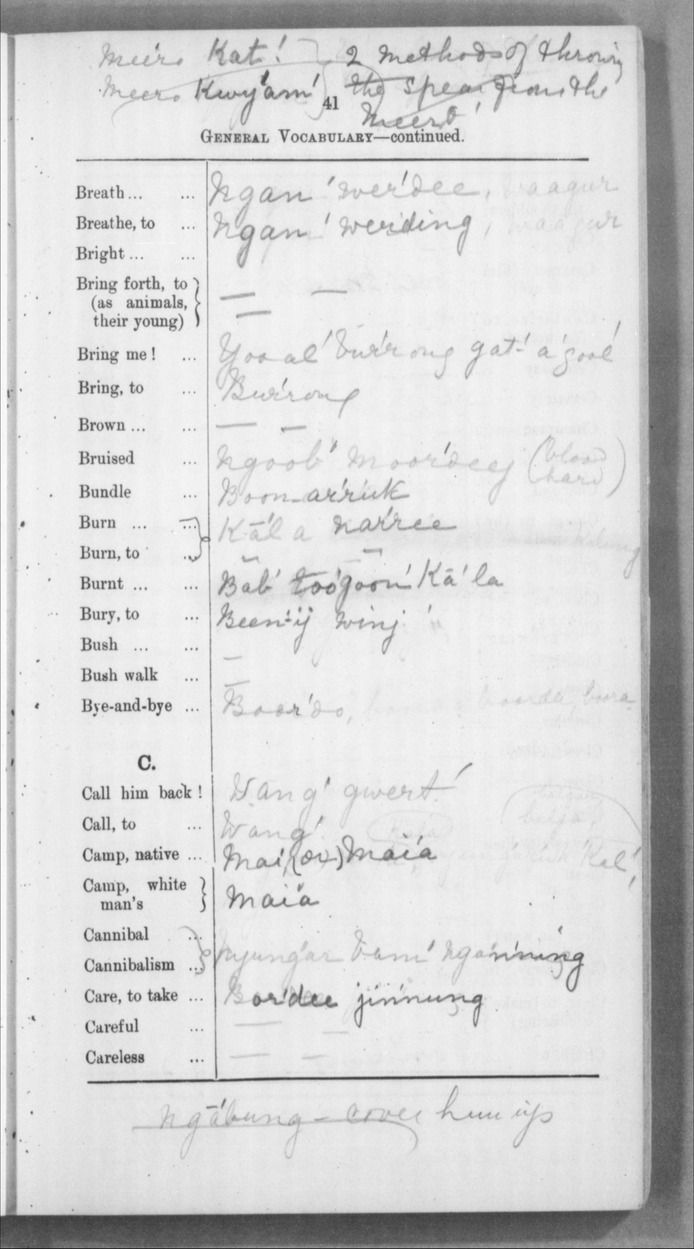 Meero Kat' } 2 methods of throwing
Meero Kwy'am' } the spear from the
41 Meero'
GENERAL VOCABULARY—continued.
Breath ... ... Ngan' wer'dee, waagur
Breathe, to ... Ngan' werding, waagur
Bright ... ...
Bring forth, to (as animals, their young) } — —
—
Bring me! ... Yooal' bur'rong gat'-a'gool'
Bring, to ... Bur'rong
Brown ... ... — —
Bruised ... Ngoob' moor'deej (blood hard)
Bundle ... Boon-ar'ruk
Burn ... ... } Kāl'a nar'ree
Burn, to ... } — —
Burnt ... ... Bab' too'goon' Kā'la
Bury, to ... Been'-ij winj'
Bush ... ...
Bush walk ... —
—
Bye-and-bye ... Boor'do, boorda, boora
C.
Call him back! Wang' gwert'
Call, to ... Wang'
Camp, native ... Mai, (or) Maia Kal'
Camp, white man's } Maia
Cannibal ... } Nyungar bam' nganning
Cannibalism ... }
Care, to take ... Bordee jinnung
Careful ... — —
Careless ... — —
Ngābung – cover him up